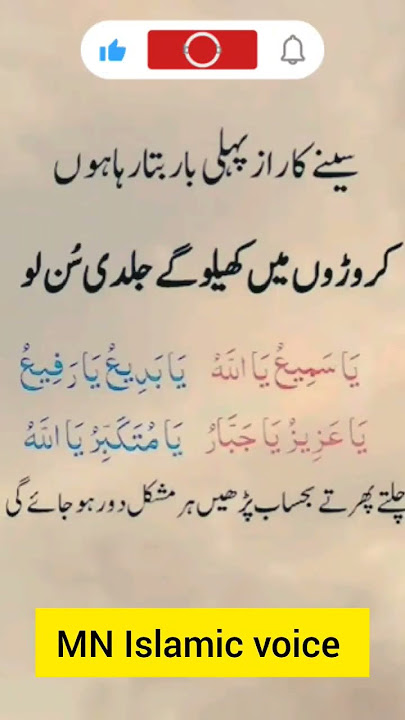 سینے کا راز پہلی بار بتا رہا ہوں
کروڑوں میں کھیلو گے جلدی سُن لو
یَا سَمِیعُ یَا اللهُ یَا بَدِیعُ یَا رَفِیعُ
یَا عَزِیزُ یَا جَبَّارُ یَا مُتَكَبِّرُ یَا اللهُ
چلتے پھرتے بحساب پڑھیں ہر مشکل دور ہو جائے گی
MN Islamic voice